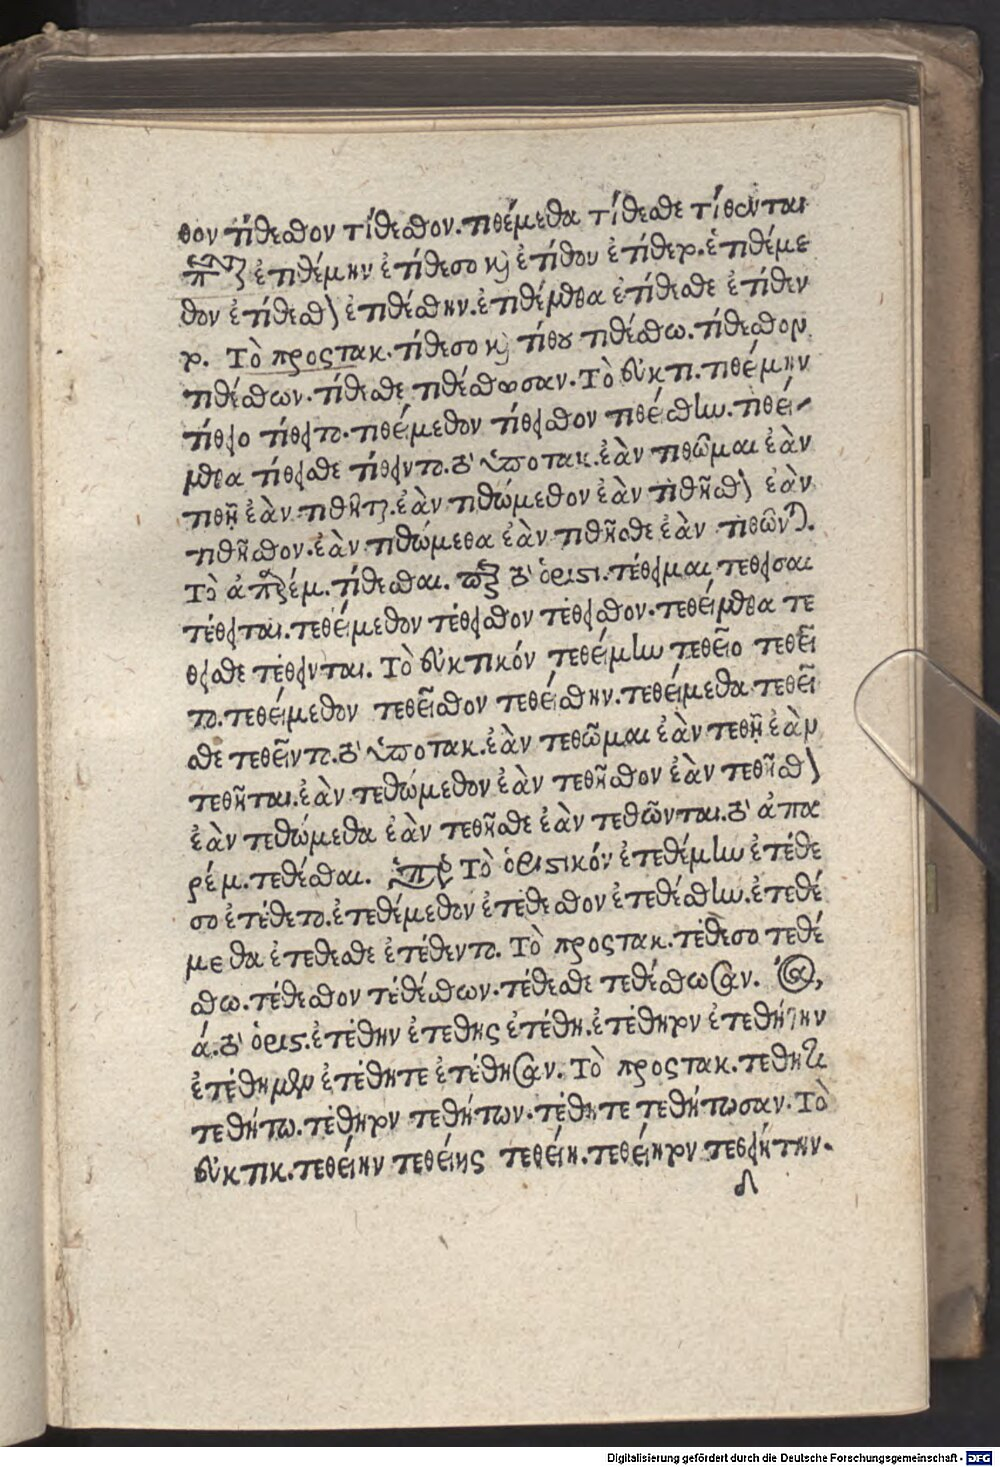 θον τίθεσθον τίθεσθον. τιθέμεθα τίθεσθε τίθενται
ἐτιθέμην ἐτίθεσο καὶ ἐτίθου ἐτίθετο. ἐτιθέμε
θον ἐτίθεσθον ἐτιθέσθην. ἐτιθέμεθα ἐτίθεσθε ἐτίθεν
το. Τὸ προςτακ. τίθεσο καὶ τίθου τιθέσθω. τίθεσθον
τιθέσθων. τίθεσθε τιθέσθωσαν. Τὸ εὐκτι. τιθείμην
τίθειο τίθειτο. τιθείμεθον τίθεισθον τιθείσθην. τιθεί-
μεθα τίθεισθε τίθειντο. τὸ ὑποτακ. ἐὰν τιθῶμαι ἐὰν
τιθῇ ἐὰν τιθῆται. ἐὰν τιθώμεθον ἐὰν τιθῆσθον ἐὰν
τιθῆσθον. ἐὰν τιθώμεθα ἐὰν τιθῆσθε ἐὰν τιθῶνται.
Τὸ ἀπαρέμ. τίθεσθαι. τὸ ὁριστι. τέθειμαι τέθεισαι
τέθειται. τεθείμεθον τέθεισθον τέθεισθον. τεθείμεθα τέ
θεισθε τέθεινται. Τὸ εὐκτικόν τεθείμην τεθεῖο τεθεῖ
το. τεθείμεθον τεθεῖσθον τεθείσθην. τεθείμεθα τεθεῖ
σθε τεθεῖντο. τὸ ὑποτακ. ἐὰν τεθῶμαι ἐὰν τεθῇ ἐὰν
τεθῆται. ἐὰν τεθώμεθον ἐὰν τεθῆσθον ἐὰν τεθῆσθον
ἐὰν τεθώμεθα ἐὰν τεθῆσθε ἐὰν τεθῶνται. τὸ ἀπα
ρέμ. τεθέσθαι. Τὸ ὁριστικόν ἐτεθέμην ἐτέθε
σο ἐτέθετο. ἐτεθέμεθον ἐτέθεσθον ἐτεθέσθην. ἐτεθέ
μεθα ἐτέθεσθε ἐτέθεντο. Τὸ προςτακ. τέθεσο τεθέ
σθω. τέθεσθον τεθέσθων. τέθεσθε τεθέσθωσαν.
ά. τὸ ὁριστ. ἐτέθην ἐτέθης ἐτέθη. ἐτέθητον ἐτεθήτην
ἐτέθημεν ἐτέθητε ἐτέθησαν. Τὸ προςτακ. τέθητι
τεθήτω. τέθητον τεθήτων. τέθητε τεθήτωσαν. Τὸ
εὐκτικ. τεθείην τεθείης τεθείη. τεθείητον τεθειήτην.